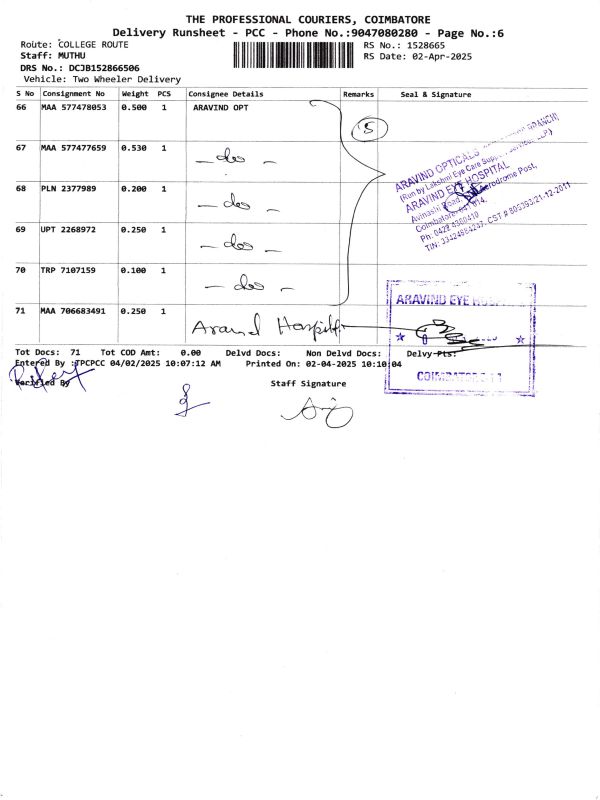 THE PROFESSIONAL COURIERS, COIMBATORE
Delivery Runsheet - PCC - Phone No.:9047080280 - Page No.:6
Route: COLLEGE ROUTE RS No.: 1528665
Staff: MUTHU RS Date: 02-Apr-2025
DRS No.: DCJB152866506
Vehicle: Two Wheeler Delivery
S No Consignment No Weight PCS Consignee Details Remarks Seal & Signature
66 MAA 577478053 0.500 1 ARAVIND OPT
5
67 MAA 577477659 0.530 1 - do -
68 PLN 2377989 0.200 1 - do -
69 UPT 2268972 0.250 1 - do -
70 TRP 7107159 0.100 1 - do -
ARAVIND OPTICALS
(Run by Lakshmi Eye Care
ARAVIND EYE HOSPITAL
Avinashi Road, Aerodrome Post,
Coimbatore
Ph: 0422 4360410
71 MAA 706683491 0.250 1 Aravind Hospital
ARAVIND EYE
COIMBATORE
Tot Docs: 71 Tot COD Amt: 0.00 Delvd Docs: Non Delvd Docs: Delvy Pts:
Entered By :TPCPCC 04/02/2025 10:07:12 AM Printed On: 02-04-2025 10:10:04
Verified By Staff Signature